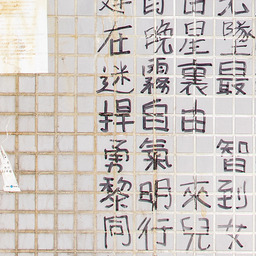 墜最 智到女
星裏由 來兒
晚霧自氣明行
在迷捍勇黎同